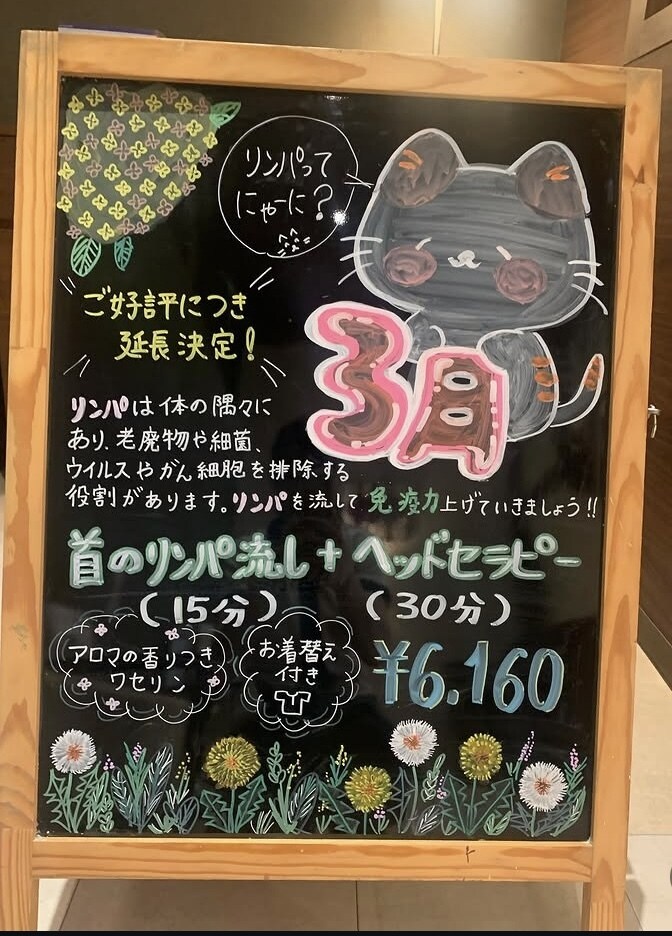 リンパって
にゃーに?
ご好評につき
延長決定!
3月
リンパは体の隅々に
あり、老廃物や細菌、
ウイルスやがん細胞を排除する
役割があります。リンパを流して免疫力上げていきましょう!!
首のリンパ流し+ヘッドセラピー
(15分) (30分)
アロマの香りつき
ワセリン
お着替え
付き
¥6.160